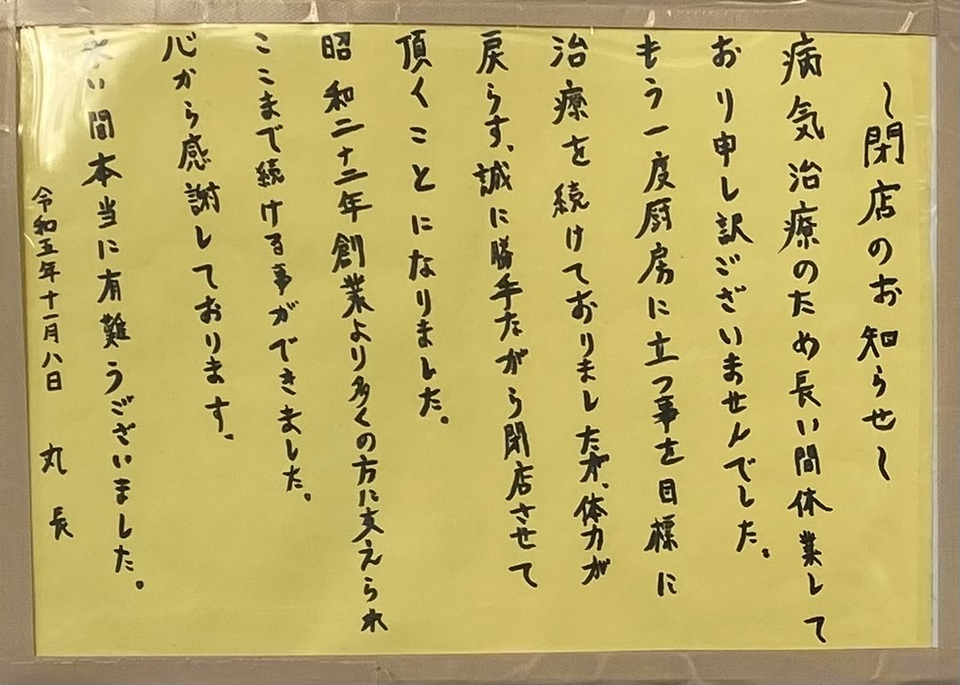 ～閉店のお知らせ～
病気治療のため長い間休業して
おり申し訳ございませんでした。
もう一度厨房に立つ事を目標に
治療を続けておりましたが、体力が
戻らず、誠に勝手ながら閉店させて
頂くことになりました。
昭和二十二年創業より多くの方に支えられ
ここまで続ける事ができました。
心から感謝しております。
永い間本当に有難うございました。
令和五年十一月八日 丸長